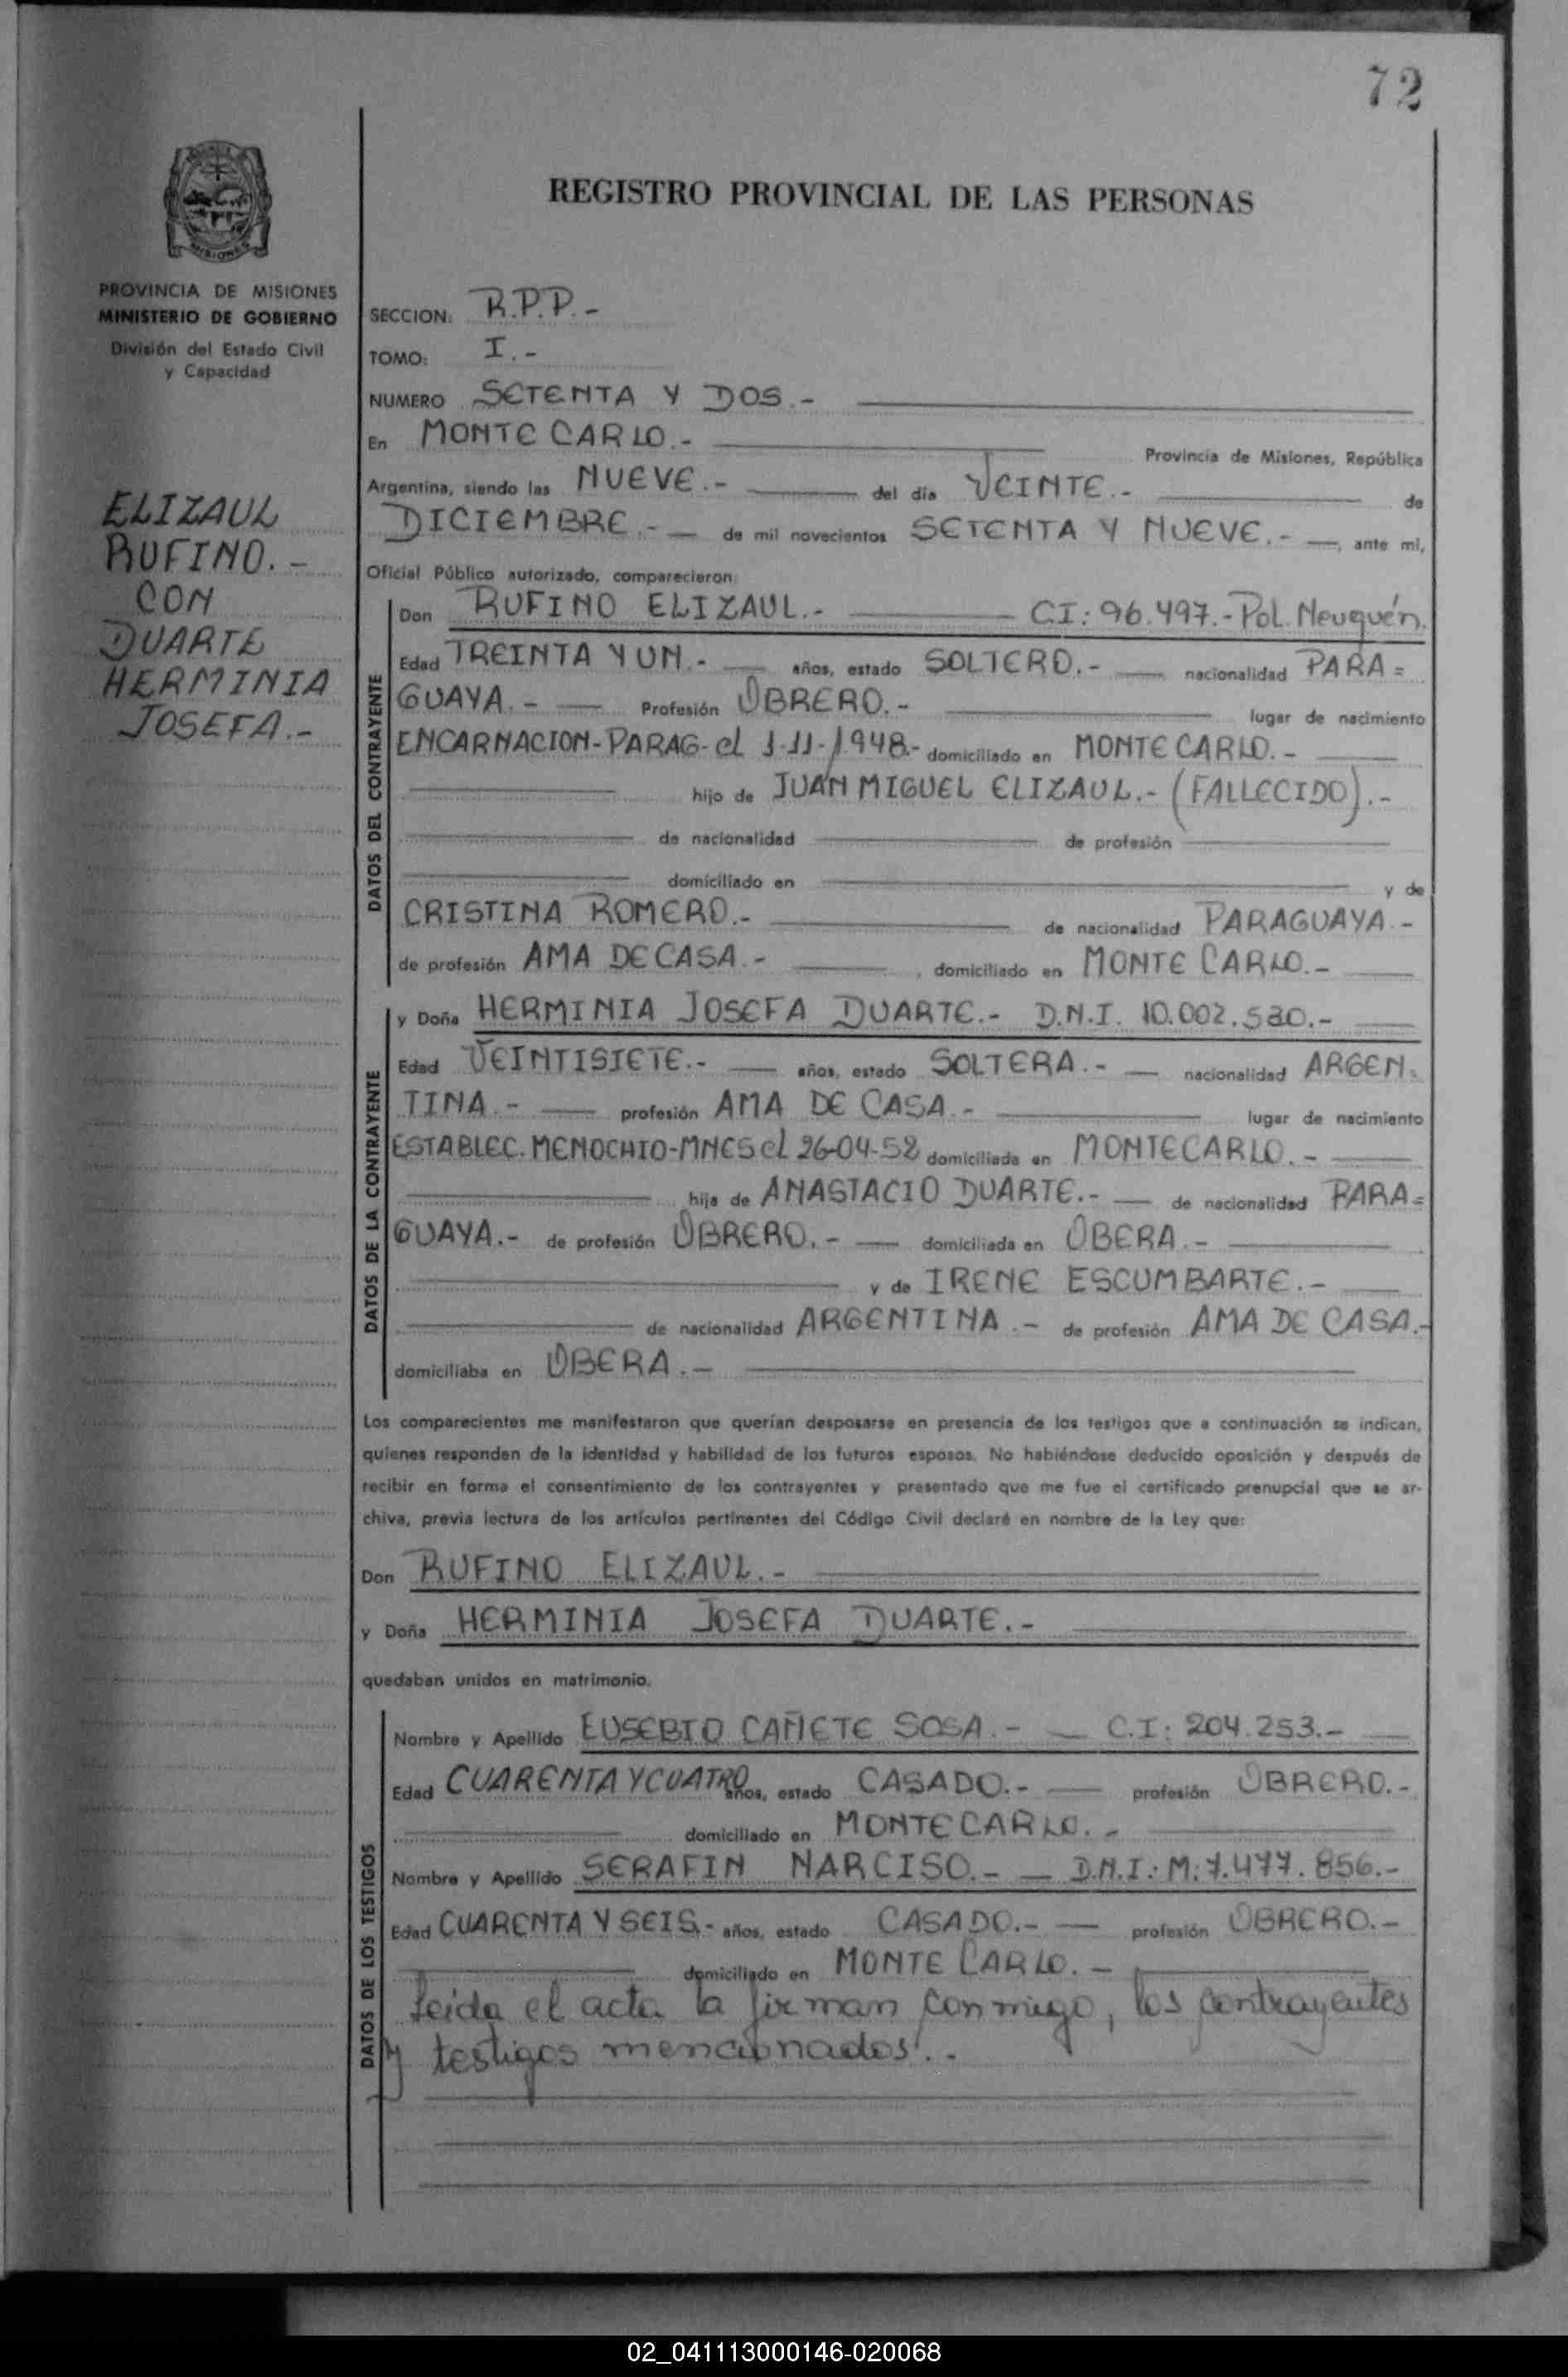 72
REGISTRO PROVINCIAL DE LAS PERSONAS
MISIONES
PROVINCIA DE MISIONES
MINISTERIO DE GOBIERNO
División del Estado Civil
y Capacidad
ELIZAUL
RUFINO.-
CON
DUARTE
HERMINIA
JOSEFA.-
SECCION: R.P.P.-
TOMO: I.-
NUMERO SETENTA Y DOS.-
En MONTECARLO.- Provincia de Misiones, República
Argentina, siendo las NUEVE.- del día VEINTE.- de
DICIEMBRE.- de mil novecientos SETENTA Y NUEVE.-, ante mi,
Oficial Público autorizado, comparecieron:
DATOS DEL CONTRAYENTE
Don RUFINO ELIZAUL.- CI: 96.497.- Pol. Neuquén.
Edad TREINTA Y UN.- años, estado SOLTERO.- nacionalidad PARA=
GUAYA.- Profesión OBRERO.- lugar de nacimiento
ENCARNACION-PARAG- el 1-11-1948.- domiciliado en MONTECARLO.-
hijo de JUAN MIGUEL ELIZAUL.- (FALLECIDO).-
de nacionalidad de profesión
domiciliado en y de
CRISTINA ROMERO.- de nacionalidad PARAGUAYA.-
de profesión AMA DE CASA.-, domiciliado en MONTE CARLO.-
DATOS DE LA CONTRAYENTE
y Doña HERMINIA JOSEFA DUARTE.- D.N.I. 10.002.530.-
Edad VEINTISIETE.- años, estado SOLTERA.- nacionalidad ARGEN=
TINA.- profesión AMA DE CASA.- lugar de nacimiento
ESTABLEC. MENOCHIO-MNES el 26-04-52 domiciliada en MONTECARLO.-
hija de ANASTACIO DUARTE.- de nacionalidad PARA=
GUAYA.- de profesión OBRERO.- domiciliada en OBERA.-
y de IRENE ESCUMBARTE.-
de nacionalidad ARGENTINA.- de profesión AMA DE CASA.-
domiciliaba en OBERA.-
Los comparecientes me manifestaron que querían desposarse en presencia de los testigos que a continuación se indican,
quienes responden de la identidad y habilidad de los futuros esposos. No habiéndose deducido oposición y después de
recibir en forma el consentimiento de los contrayentes y presentado que me fue el certificado prenupcial que se ar-
chiva, previa lectura de los artículos pertinentes del Código Civil declaré en nombre de la Ley que:
Don RUFINO ELIZAUL.-
y Doña HERMINIA JOSEFA DUARTE.-
quedaban unidos en matrimonio.
DATOS DE LOS TESTIGOS
Nombre y Apellido EUSEBIO CAÑETE SOSA.- C.I: 204.253.-
Edad CUARENTA Y CUATRO años, estado CASADO.- profesión OBRERO.-
domiciliado en MONTECARLO.-
Nombre y Apellido SERAFIN NARCISO.- D.N.I.: M: 7.477.856.-
Edad CUARENTA Y SEIS.- años, estado CASADO.- profesión OBRERO.-
domiciliado en MONTE CARLO.-
Leida el acta la firman conmigo, los contrayentes
y testigos mencionados.-
02_041113000146-020068